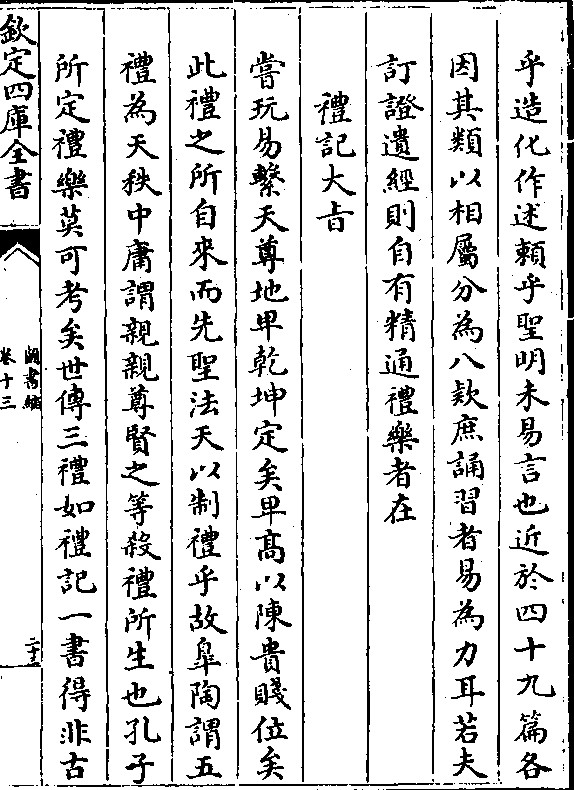 乎造化作述頼乎聖明未易言也近於四十九篇各
因其類以相屬分為八欵庶誦習者易為力耳若夫
訂證遺經則自有精通禮樂者在
禮記大㫖
嘗玩易繫天尊地卑乾坤定矣卑髙以陳貴賤位矣
此禮之所自來而先聖法天以制禮乎故臯陶謂五
禮為天秩中庸謂親親尊賢之等殺禮所生也孔子
所定禮樂莫可考矣世傳三禮如禮記一書得非古
欽定四庫全書
圖書編
卷十三
二十三